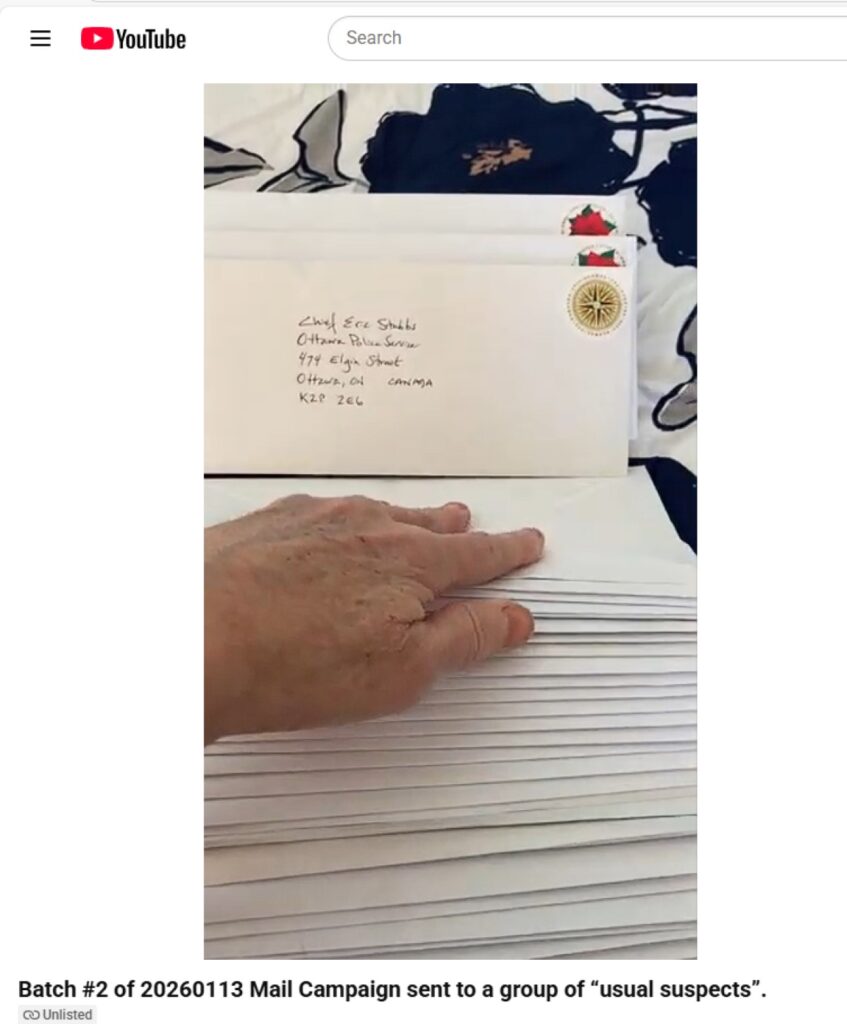 YouTube
Search
Chief Eric Stubbs
Ottawa Police Service
474 Elgin Street
Ottawa, ON CANADA
K2P 2E6
Batch #2 of 20260113 Mail Campaign sent to a group of “usual suspects”.
Unlisted